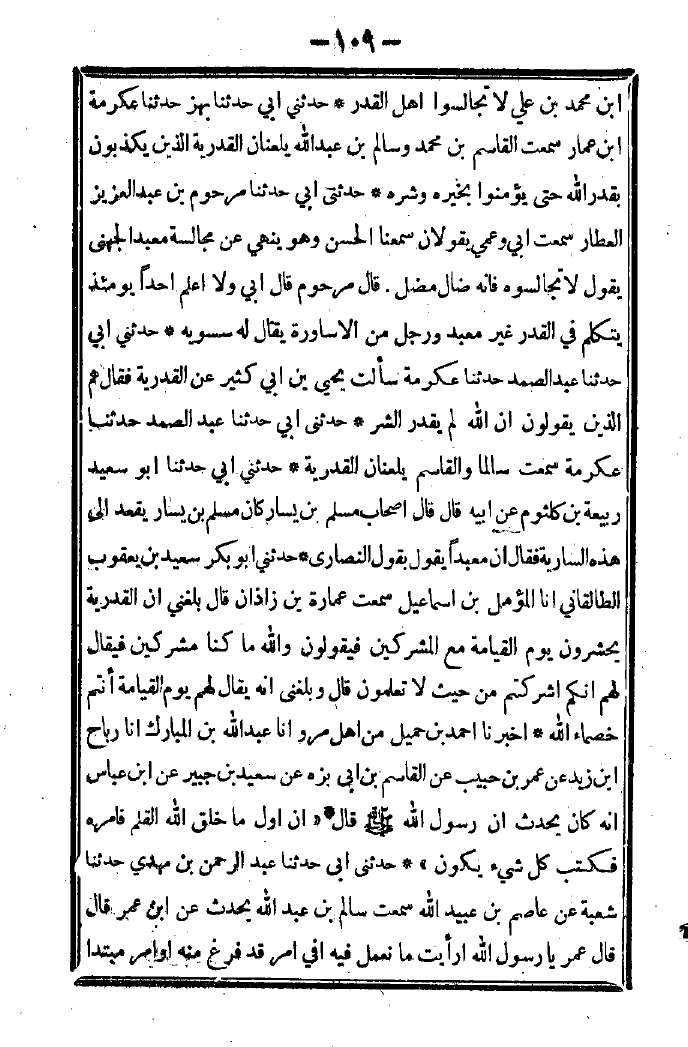 — ١٠٩ —
ابن محمد بن علي لا تجالسوا اهل القدر * حدثني ابي حدثنا بهز حدثنا عكرمة
ابن عمار سمعت القاسم بن محمد وسالم بن عبدالله يلعنان القدرية الذين يكذبون
بقدر الله حتى يؤمنوا بخيره وشره * حدثني ابي حدثنا مرحوم بن عبدالعزيز
العطار سمعت ابي وعمي يقولان سمعنا الحسن وهو ينهي عن مجالسة معبد الجهنى
يقول لا تجالسوه فانه ضال مضل . قال مرحوم قال ابي ولا اعلم احداً يومئذ
يتكلم في القدر غير معبد ورجل من الاساورة يقال له سسويه * حدثني ابي
حدثنا عبدالصمد حدثنا عكرمة سألت يحيي بن ابي كثير عن القدرية فقال هم
الذين يقولون ان الله لم يقدر الشر * حدثنى ابي حدثنا عبد الصمد حدثنا
عكرمة سمعت سالما والقاسم يلعنان القدرية * حدثني ابي حدثنا ابو سعيد
ربيعة بن كلثوم عن ابيه قال قال اصحاب مسلم بن يسار كان مسلم بن يسار يقعد الى
هذه السارية فقال ان معبداً يقول بقول النصارى * حدثني ابو بكر سعيد بن يعقوب
الطالقاني انا المؤمل بن اسماعيل سمعت عمارة بن زاذان قال بلغني ان القدرية
يحشرون يوم القيامة مع المشركين فيقولون والله ما كنا مشركين فيقال
لهم انكم اشركتم من حيث لا تعلمون قال وبلغنى انه يقال لهم يوم القيامة أنتم
خصماء الله * اخبرنا احمد بن جميل من اهل مرو انا عبدالله بن المبارك انا رباح
ابن زيد عن عمر بن حبيب عن القاسم بن ابى بزه عن سعيد بن جبير عن ابن عباس
انه كان يحدث ان رسول الله ﷺ قال « ان اول ما خلق الله القلم فامره
فكتب كل شيء يكون » * حدثنى ابى حدثنا عبد الرحمن بن مهدي حدثنا
شعبة عن عاصم بن عبيد الله سمعت سالم بن عبد الله يحدث عن ابن عمر قال
قال عمر يا رسول الله ارأيت ما نعمل فيه افي امر قد فرغ منه اوامر مبتدا